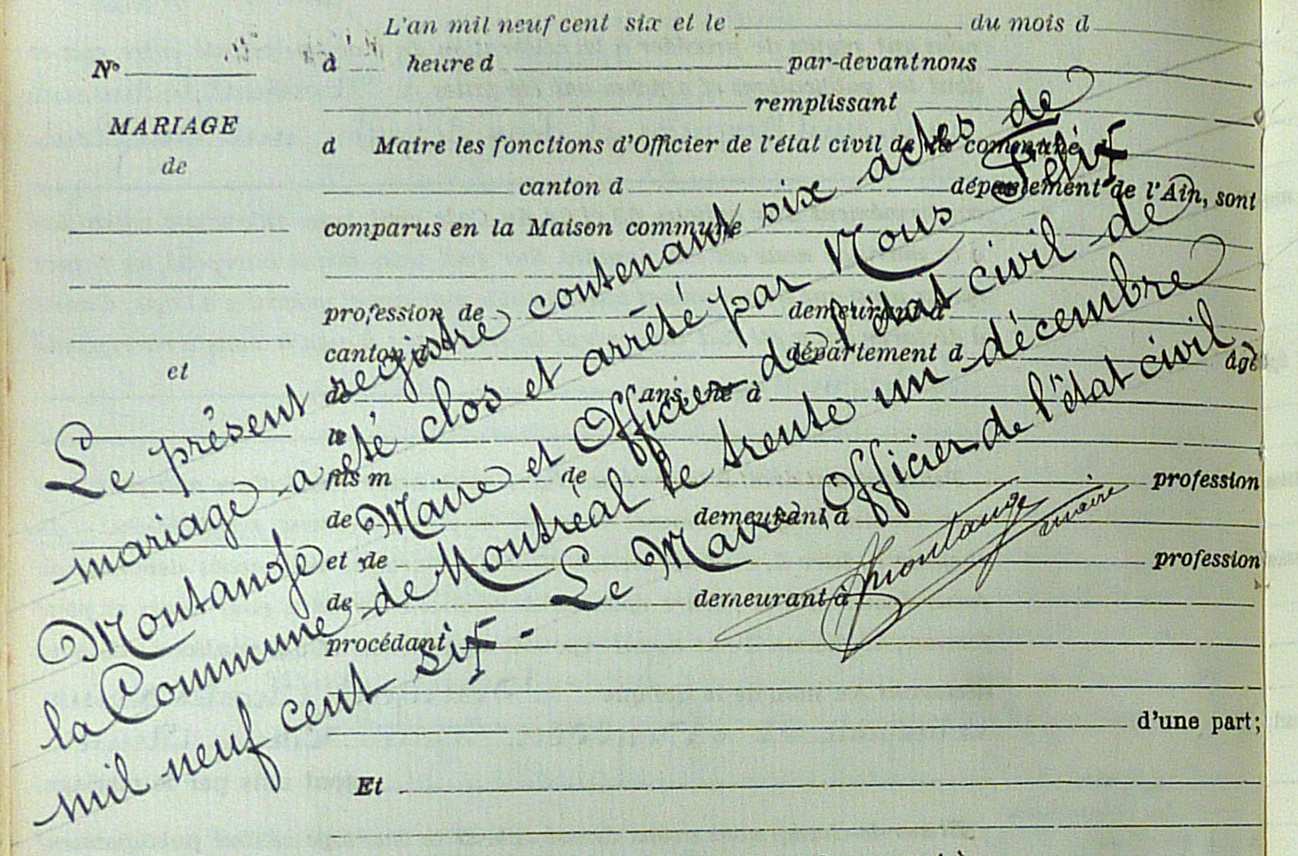 L'an mil neuf cent six et le du mois d
N° à heure d par-devant nous
remplissant
MARIAGE
d Maire les fonctions d'Officier de l'état civil de la commune d
de
canton d département de l'Ain, sont
comparus en la Maison commune
profession de demeurant à
canton d département d âgé
et
de ans, né à
le
fils m de profession
de demeurant à
et de profession
de demeurant à
procédant
d'une part;
Et
Le présent registre contenant six actes de
mariage a été clos et arrêté par Nous Félix
Montange Maire et Officier de l'état civil de
la Commune de Montréal le trente un décembre
mil neuf cent six -
Le Maire, Officier de l'état civil,
Montange
maire